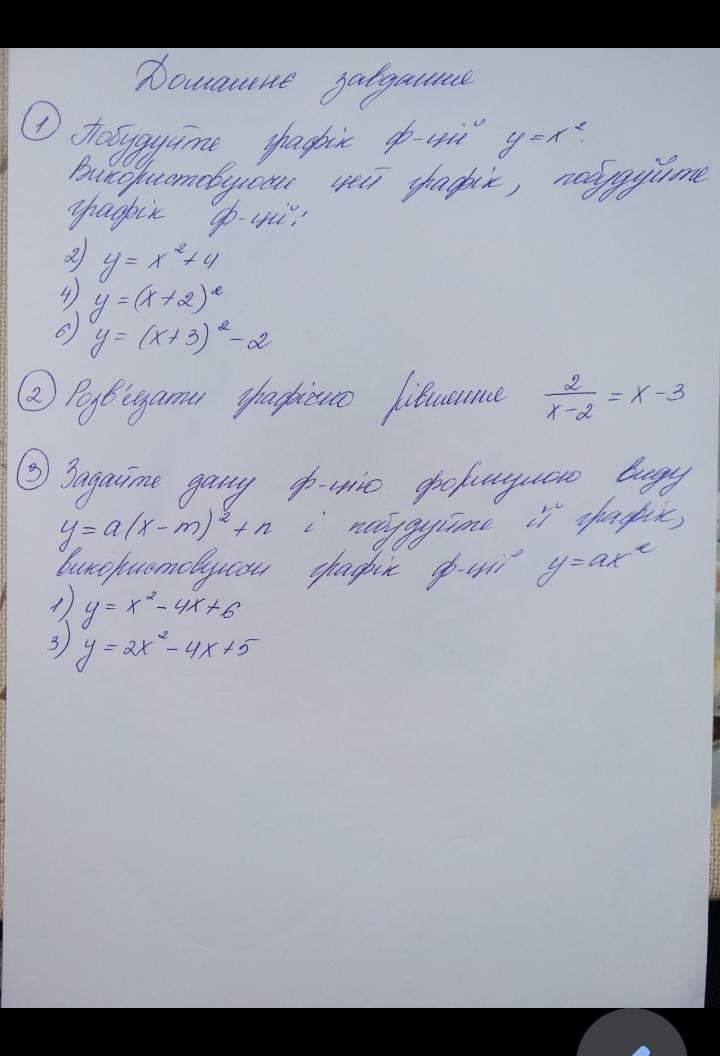 Домашнє завдання
① Побудуйте графік ф-ції y=x².
Використовуючи цей графік, побудуйте
графік ф-ції:
2) y = x²+4
4) y = (x+2)²
6) y = (x+3)² - 2
② Розв'язати графічно рівняння 2/(x-2) = x-3
③ Задайте дану ф-цію формулою виду
y=a(x-m)²+n і побудуйте її графік,
використовуючи графік ф-ції y=ax²
1) y = x² - 4x+6
3) y = 2x² - 4x+5